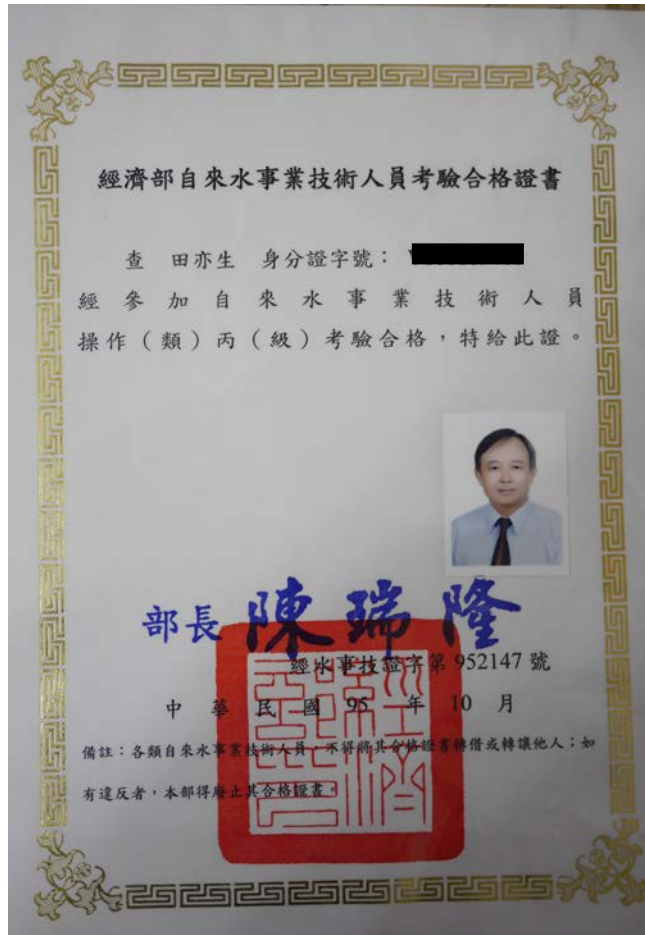 經濟部自來水事業技術人員考驗合格證書
查 田亦生 身分證字號：
經參加自來水事業技術人員
操作（類）丙（級）考驗合格，特給此證。
部長 陳瑞隆
經水事技證字第 952147 號
中華民國 95 年 10 月
備註：各類自來水事業技術人員，不得將其合格證書轉借或轉讓他人；如
有違反者，本部得廢止其合格證書。
經濟部印